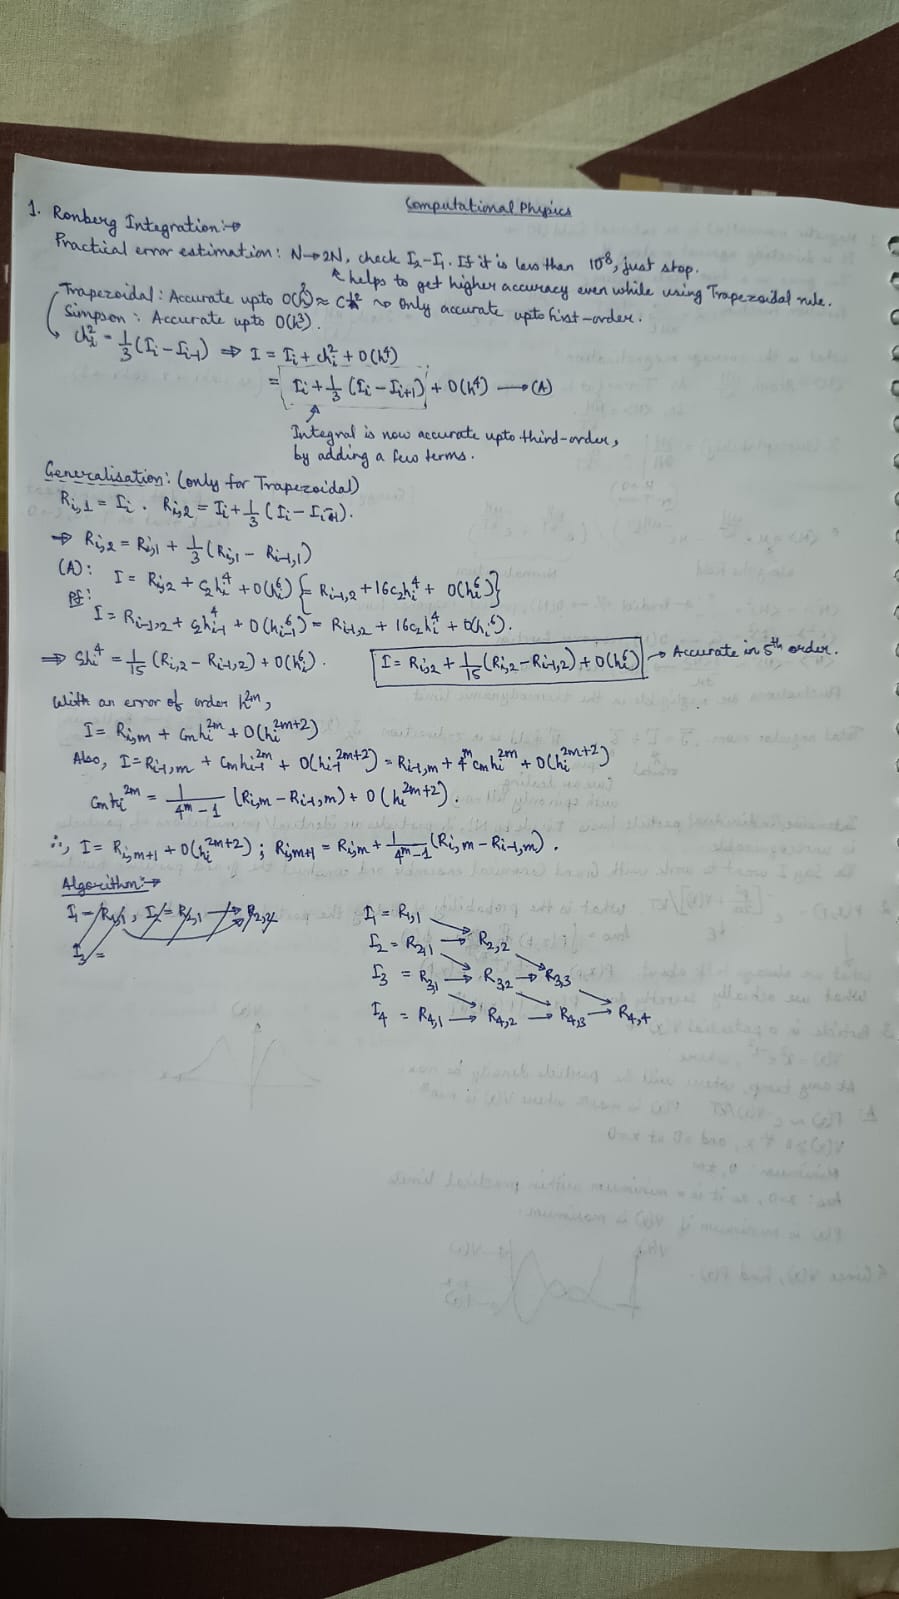 Computational Physics
1. Ronberg Integration:→
Practical error estimation: N→2N, check I₂-I₁. If it is less than 10⁻⁸, just stop.
↖ helps to get higher accuracy even while using Trapezoidal rule.
Trapezoidal: Accurate upto O(h²) ≈ Ch² ~> Only accurate upto first-order.
Simpson: Accurate upto O(h³).
ch²ᵢ = 1/3 (Iᵢ - Iᵢ₋₁) ⇒ I = Iᵢ + ch²ᵢ + O(h⁴)
= Iᵢ + 1/3 (Iᵢ - Iᵢ₊₁) + O(h⁴) → (A)
Integral is now accurate upto third-order,
by adding a few terms.
Generalisation: (only for Trapezoidal)
Rᵢ,₁ = Iᵢ. Rᵢ,₂ = Iᵢ + 1/3 (Iᵢ - Iᵢ₋₁).
⇒ Rᵢ,₂ = Rᵢ,₁ + 1/3 (Rᵢ,₁ - Rᵢ₋₁,₁)
(A): I = Rᵢ,₂ + c₂hᵢ⁴ + O(hᵢ⁶) {= Rᵢ₋₁,₂ + 16c₂hᵢ⁴ + O(hᵢ⁶)}
Pf: I = Rᵢ₋₁,₂ + c₂h⁴ᵢ₋₁ + O(h⁶ᵢ₋₁) = Rᵢ₋₁,₂ + 16c₂hᵢ⁴ + O(hᵢ⁶).
⇒ c₂hᵢ⁴ = 1/15 (Rᵢ,₂ - Rᵢ₋₁,₂) + O(hᵢ⁶). I = Rᵢ,₂ + 1/15 (Rᵢ,₂ - Rᵢ₋₁,₂) + O(hᵢ⁶) → Accurate in 5th order.
With an error of order h²ᵐ,
I = Rᵢ,m + cₘhᵢ²ᵐ + O(hᵢ²ᵐ⁺²)
Also, I = Rᵢ₋₁,m + cₘhᵢ₋₁²ᵐ + O(hᵢ₋₁²ᵐ⁺²) = Rᵢ₋₁,m + 4ᵐcₘhᵢ²ᵐ + O(hᵢ²ᵐ⁺²)
cₘhᵢ²ᵐ = 1/(4ᵐ-1) (Rᵢ,m - Rᵢ₋₁,m) + O(hᵢ²ᵐ⁺²).
∴, I = Rᵢ,m+1 + O(hᵢ²ᵐ⁺²); Rᵢ,m+1 = Rᵢ,m + 1/(4ᵐ-1) (Rᵢ,m - Rᵢ₋₁,m).
Algorithm:→
I₁ = R₁,₁
I₂ = R₂,₁ → R₂,₂
I₃ = R₃,₁ → R₃,₂ → R₃,₃
I₄ = R₄,₁ → R₄,₂ → R₄,₃ → R₄,₄